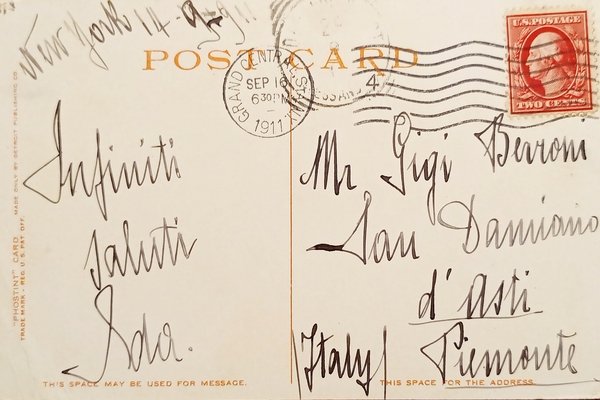 New York 14-9-911
POST CARD
GRAND CENTRAL STATION
SEP 16
630PM
1911
4
U.S. POSTAGE
TWO CENTS
Infiniti
saluti
Ada.
Mr Gigi Berroni
San Damiano
d'Asti
(Italy) Piemonte
"PHOSTINT" CARD MADE ONLY BY DETROIT PUBLISHING CO.
TRADE MARK REG. U.S. PAT. OFF.
THIS SPACE MAY BE USED FOR MESSAGE.
THIS SPACE FOR THE ADDRESS.